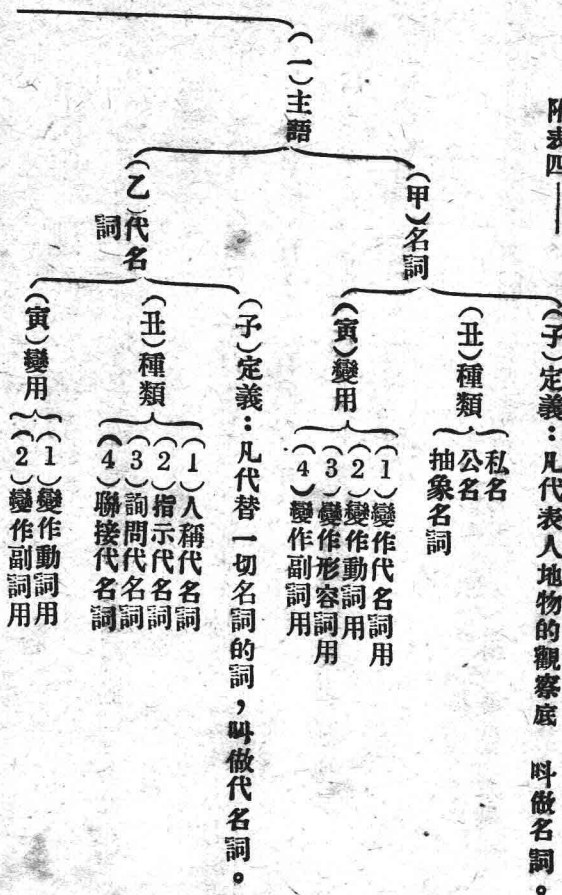 附表四——
(子)定義：凡代表人地物的觀察底　叫做名詞。
(丑)種類
私名
公名
抽象名詞
(甲)名詞
(寅)變用
(1)變作代名詞用
(2)變作動詞用
(3)變作形容詞用
(4)變作副詞用
(一)主語
(子)定義：凡代替一切名詞的詞，叫做代名詞。
(乙)代名詞
(丑)種類
(1)人稱代名詞
(2)指示代名詞
(3)詢問代名詞
(4)聯接代名詞
(寅)變用
(1)變作動詞用
(2)變作副詞用